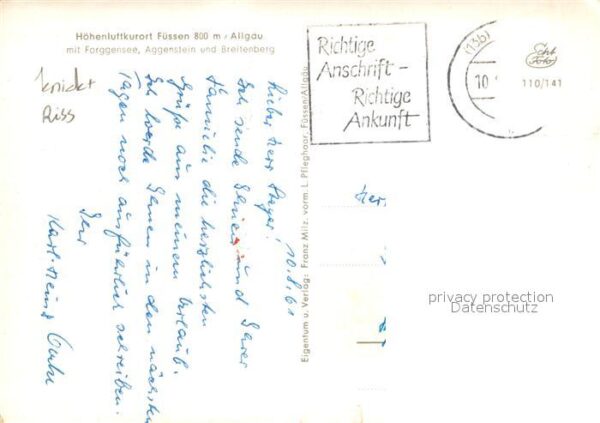 Höhenluftkurort Füssen 800 m / Allgäu
mit Forggensee, Aggenstein und Breitenberg
knickt
Riss
10.8.61
Lieber Herr
Ich sende Ihnen und Ihrer
Familie die herzlichsten
Grüße aus meinem Urlaub.
Ich werde Ihnen in den nächsten
Tagen noch ausführlich schreiben.
Ihr
Karl-Heinz
Eigentum u. Verlag: Franz Milz, vorm. L. Pfleghaar, Füssen/Allgäu
Richtige
Anschrift –
Richtige
Ankunft
(13b)
10.
Echt
Foto
110/141
Her
privacy protection
Datenschutz